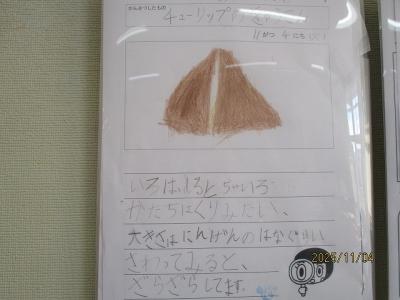 かんさつしたもの
チューリップ
11がつ4にち(火)
いろは、しろとちゃいろ
かたちはくりみたい、
大きさはにんげんのはなぐらい
さわってみると、
ざらざらしてます。
2025/11/04